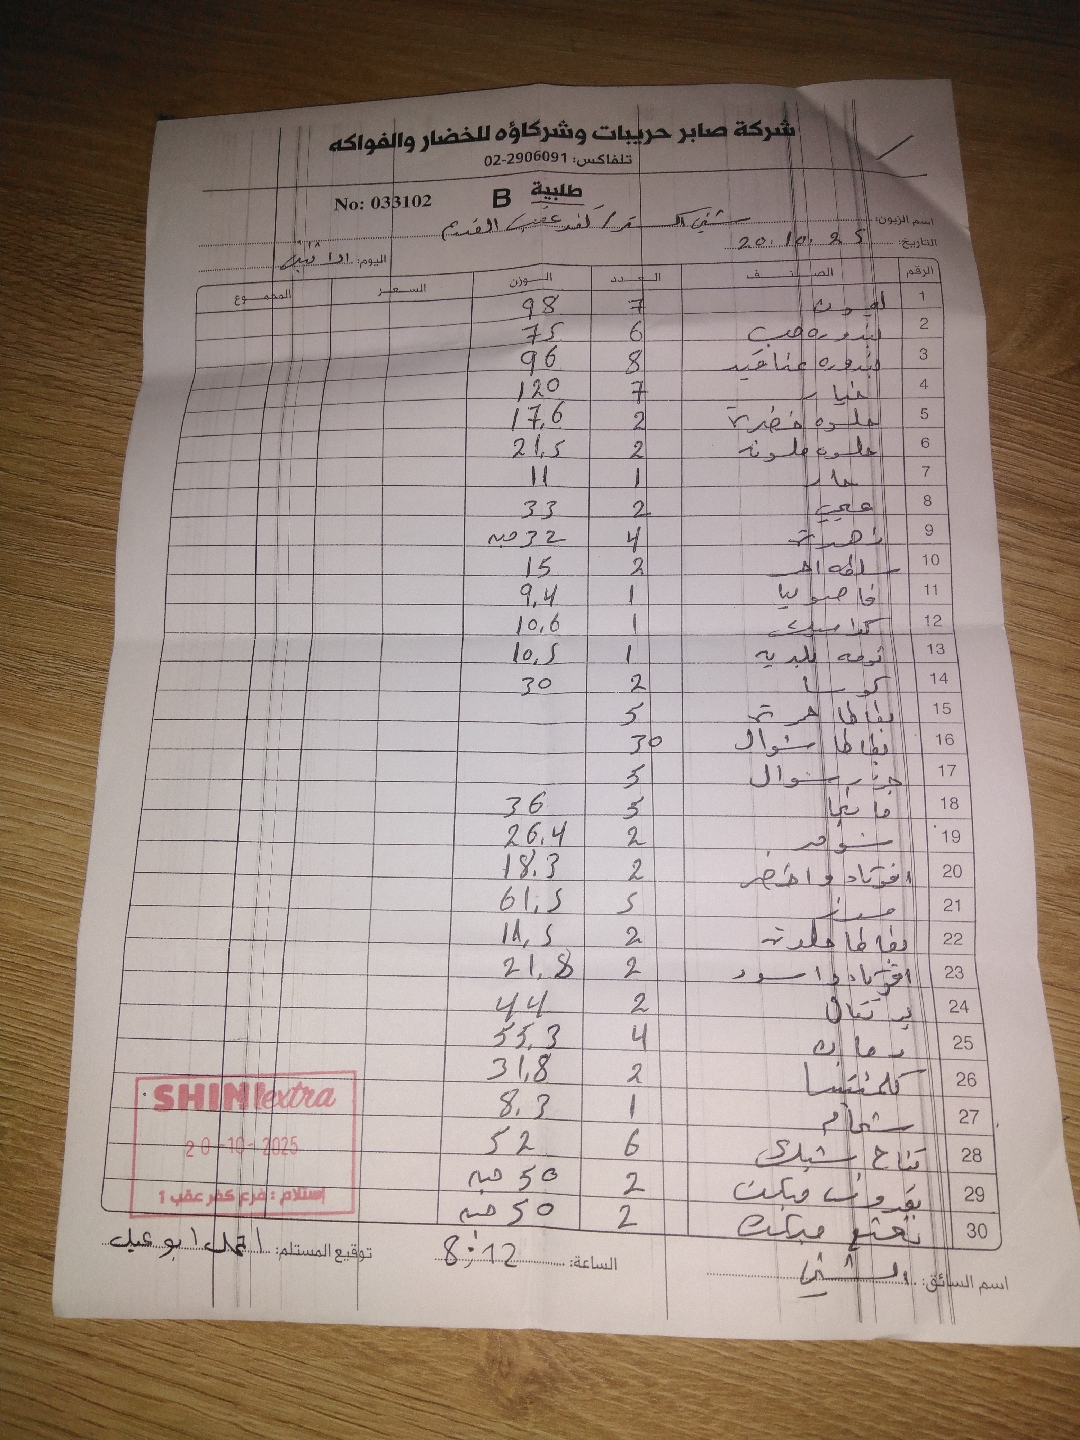 شركة صابر حريبات وشركاؤه للخضار والفواكه
تلفاكس: 02-2906091
No: 033102 B طلبية
اسم الزبون: شني اكسترا / كفر عقب القديم
التاريخ: 20.10.25
اليوم: الاثنين
الرقم الصنف العدد الوزن السعر المجموع
1 ليمون 7 98
2 بندوره حب 6 75
3 بندوره عناقيد 8 96
4 خيار 7 120
5 حلوه خضرة 2 17,6
6 حلوه ملونه 2 21,5
7 حار 1 11
8 عجمي 2 33
9 زهرة 4 32 حبه
10 احمر 2 15
11 فاصوليا 1 9,4
12 1 10,6
13 ثومه بلديه 1 10,5
14 كوسا 2 30
15 بطاطا 5
16 بطاطا شوال 30
17 جزر شوال 5
18 مانجا 5 36
19 شومر 2 26,4
20 افوكادو اخضر 2 18,3
21 موز 5 61,5
22 بطاطا حلوة 2 11,5
23 افوكادو اسود 2 21,8
24 برتقال 2 44
25 رمان 4 55,3
26 كلمنتينا 2 31,8
27 شمام 1 8.3
28 تفاح 6 52
29 بقدونس مبكت 2 50 حبه
30 نعنع مبكت 2 50 حبه
SHINI extra
20-10-2025
إستلام : فرع كفر عقب 1
اسم السائق:
الساعة: 8:12
توقيع المستلم: